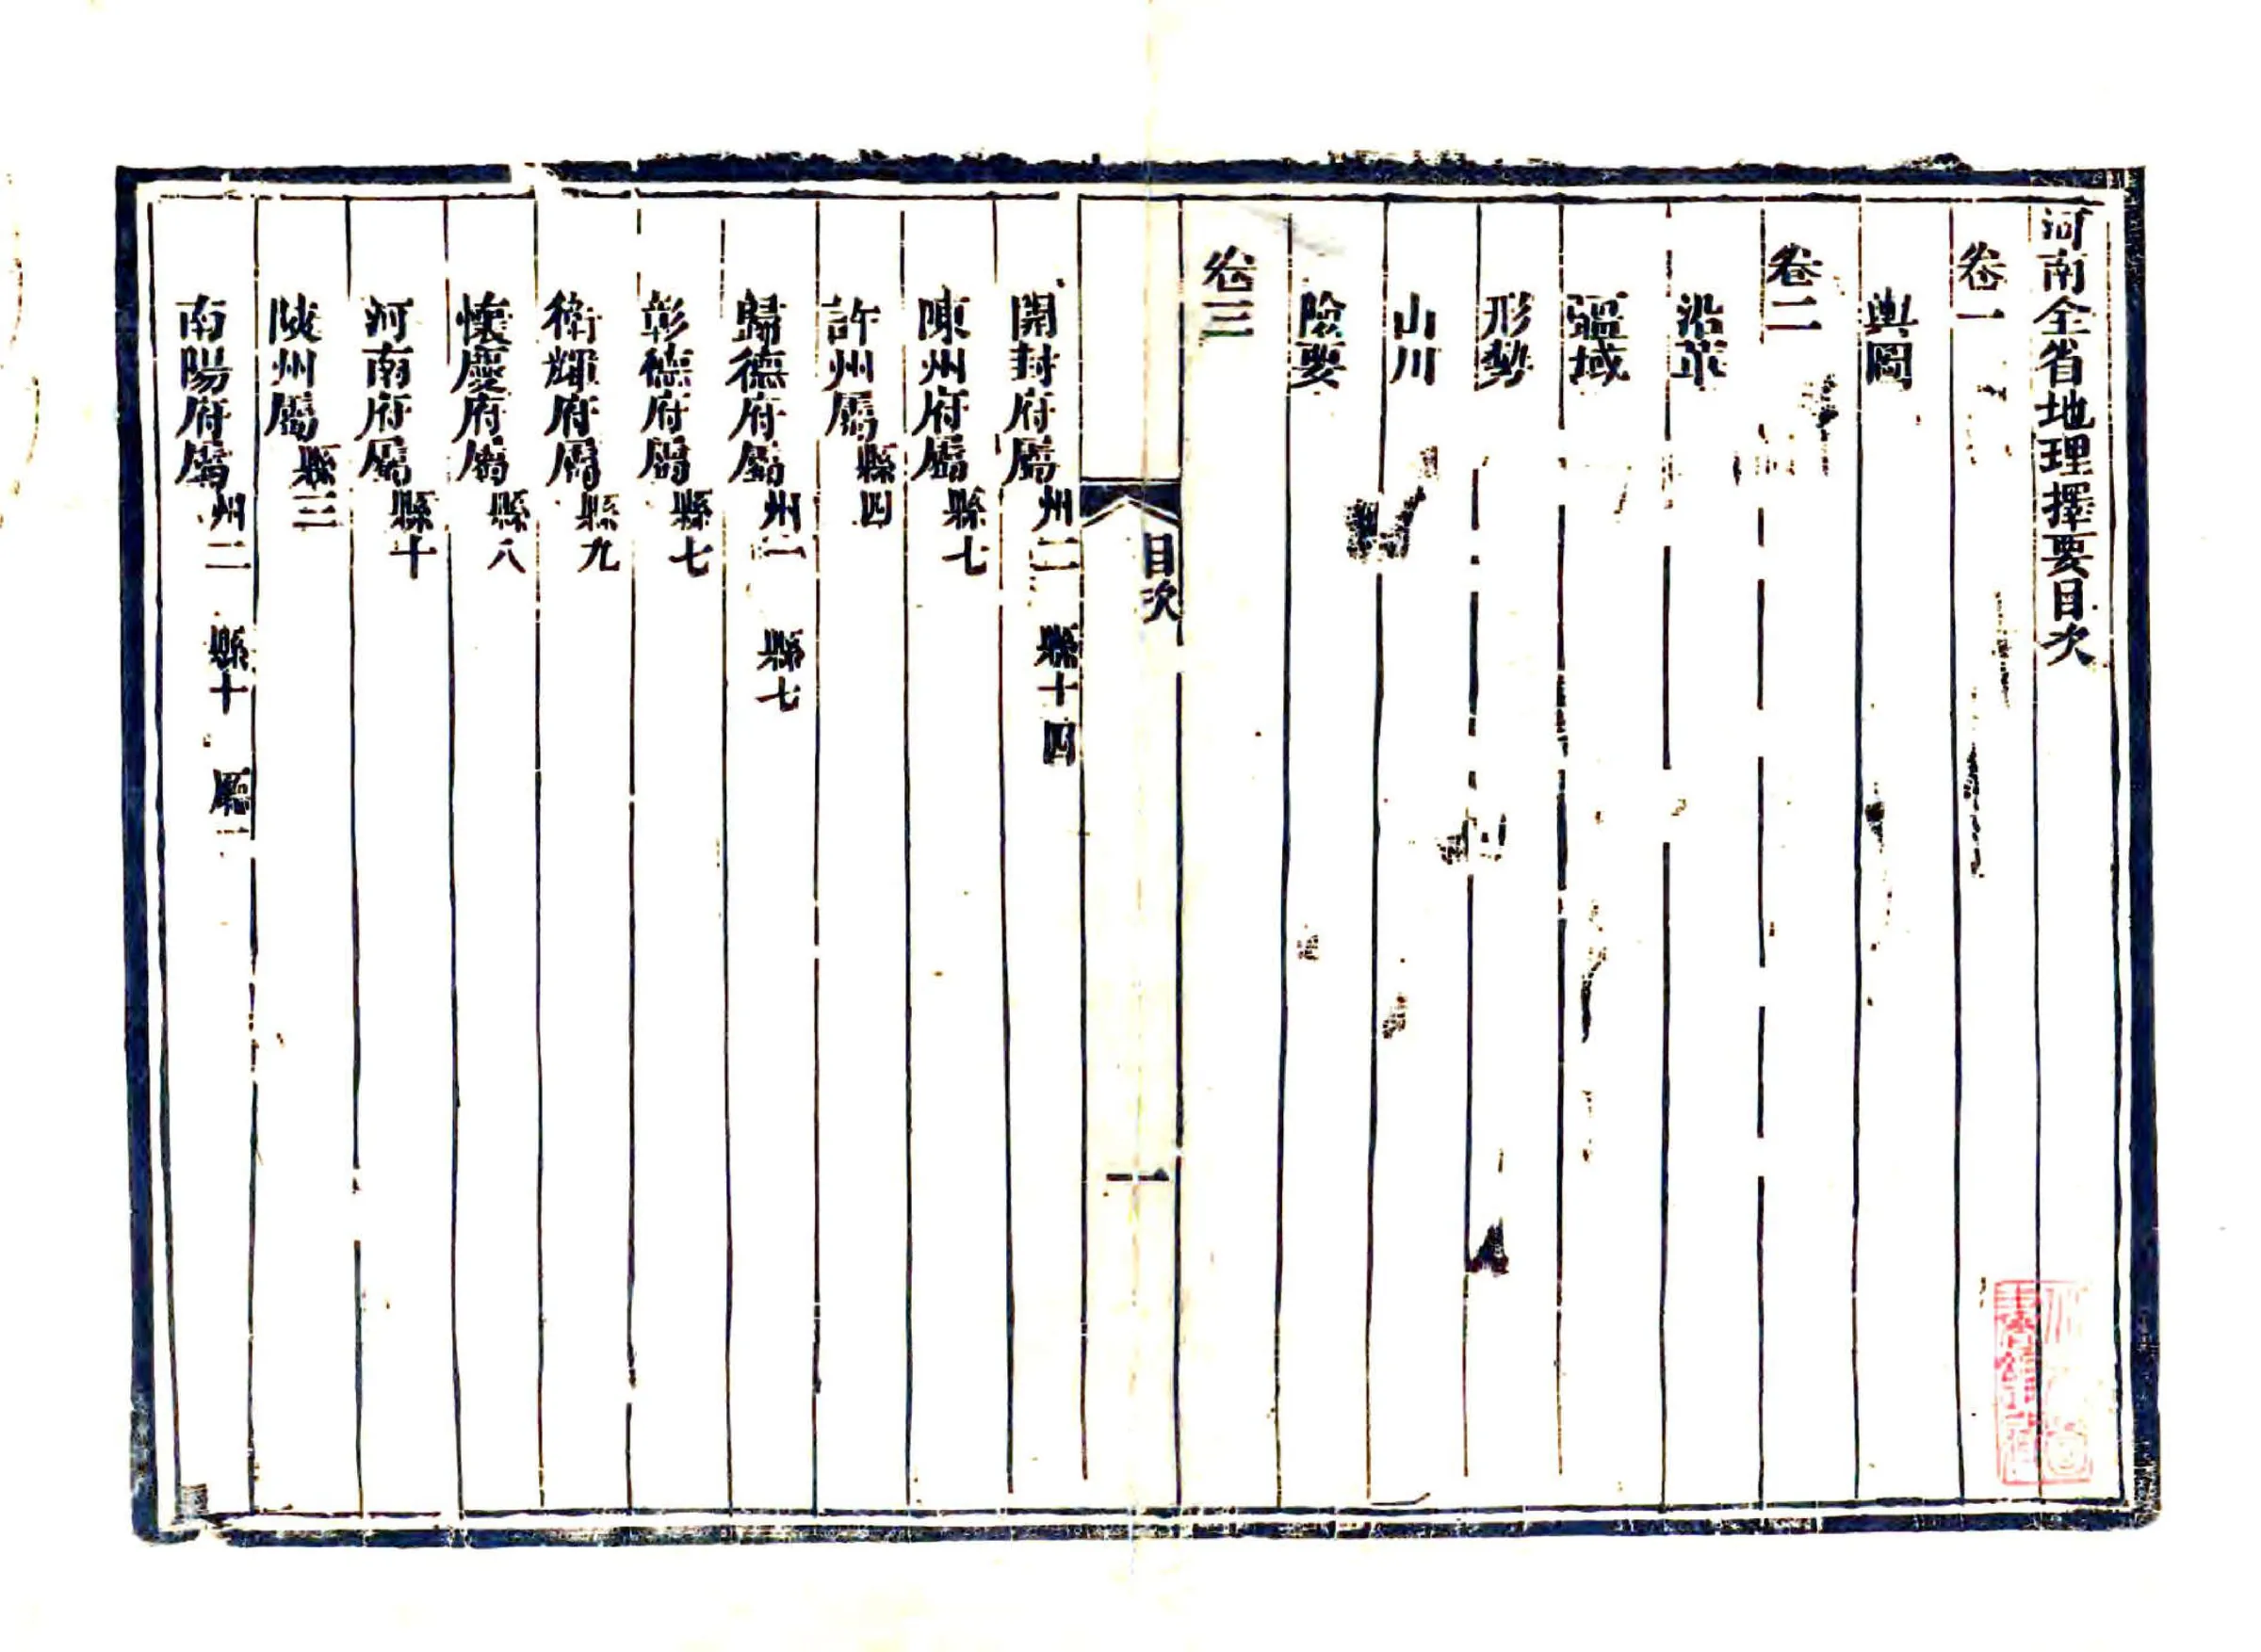 河南全省地理擇要目次
卷一
輿圖
卷二
沿革
疆域
形勢
山川
險要
卷三
目次
一
開封府屬 州二 縣十四
陳州府屬 縣七
許州屬 縣四
歸德府屬 州一 縣七
彰德府屬 縣七
衛輝府屬 縣九
懷慶府屬 縣八
河南府屬 縣十
陜州屬 縣三
南陽府屬 州二 縣十 廳一